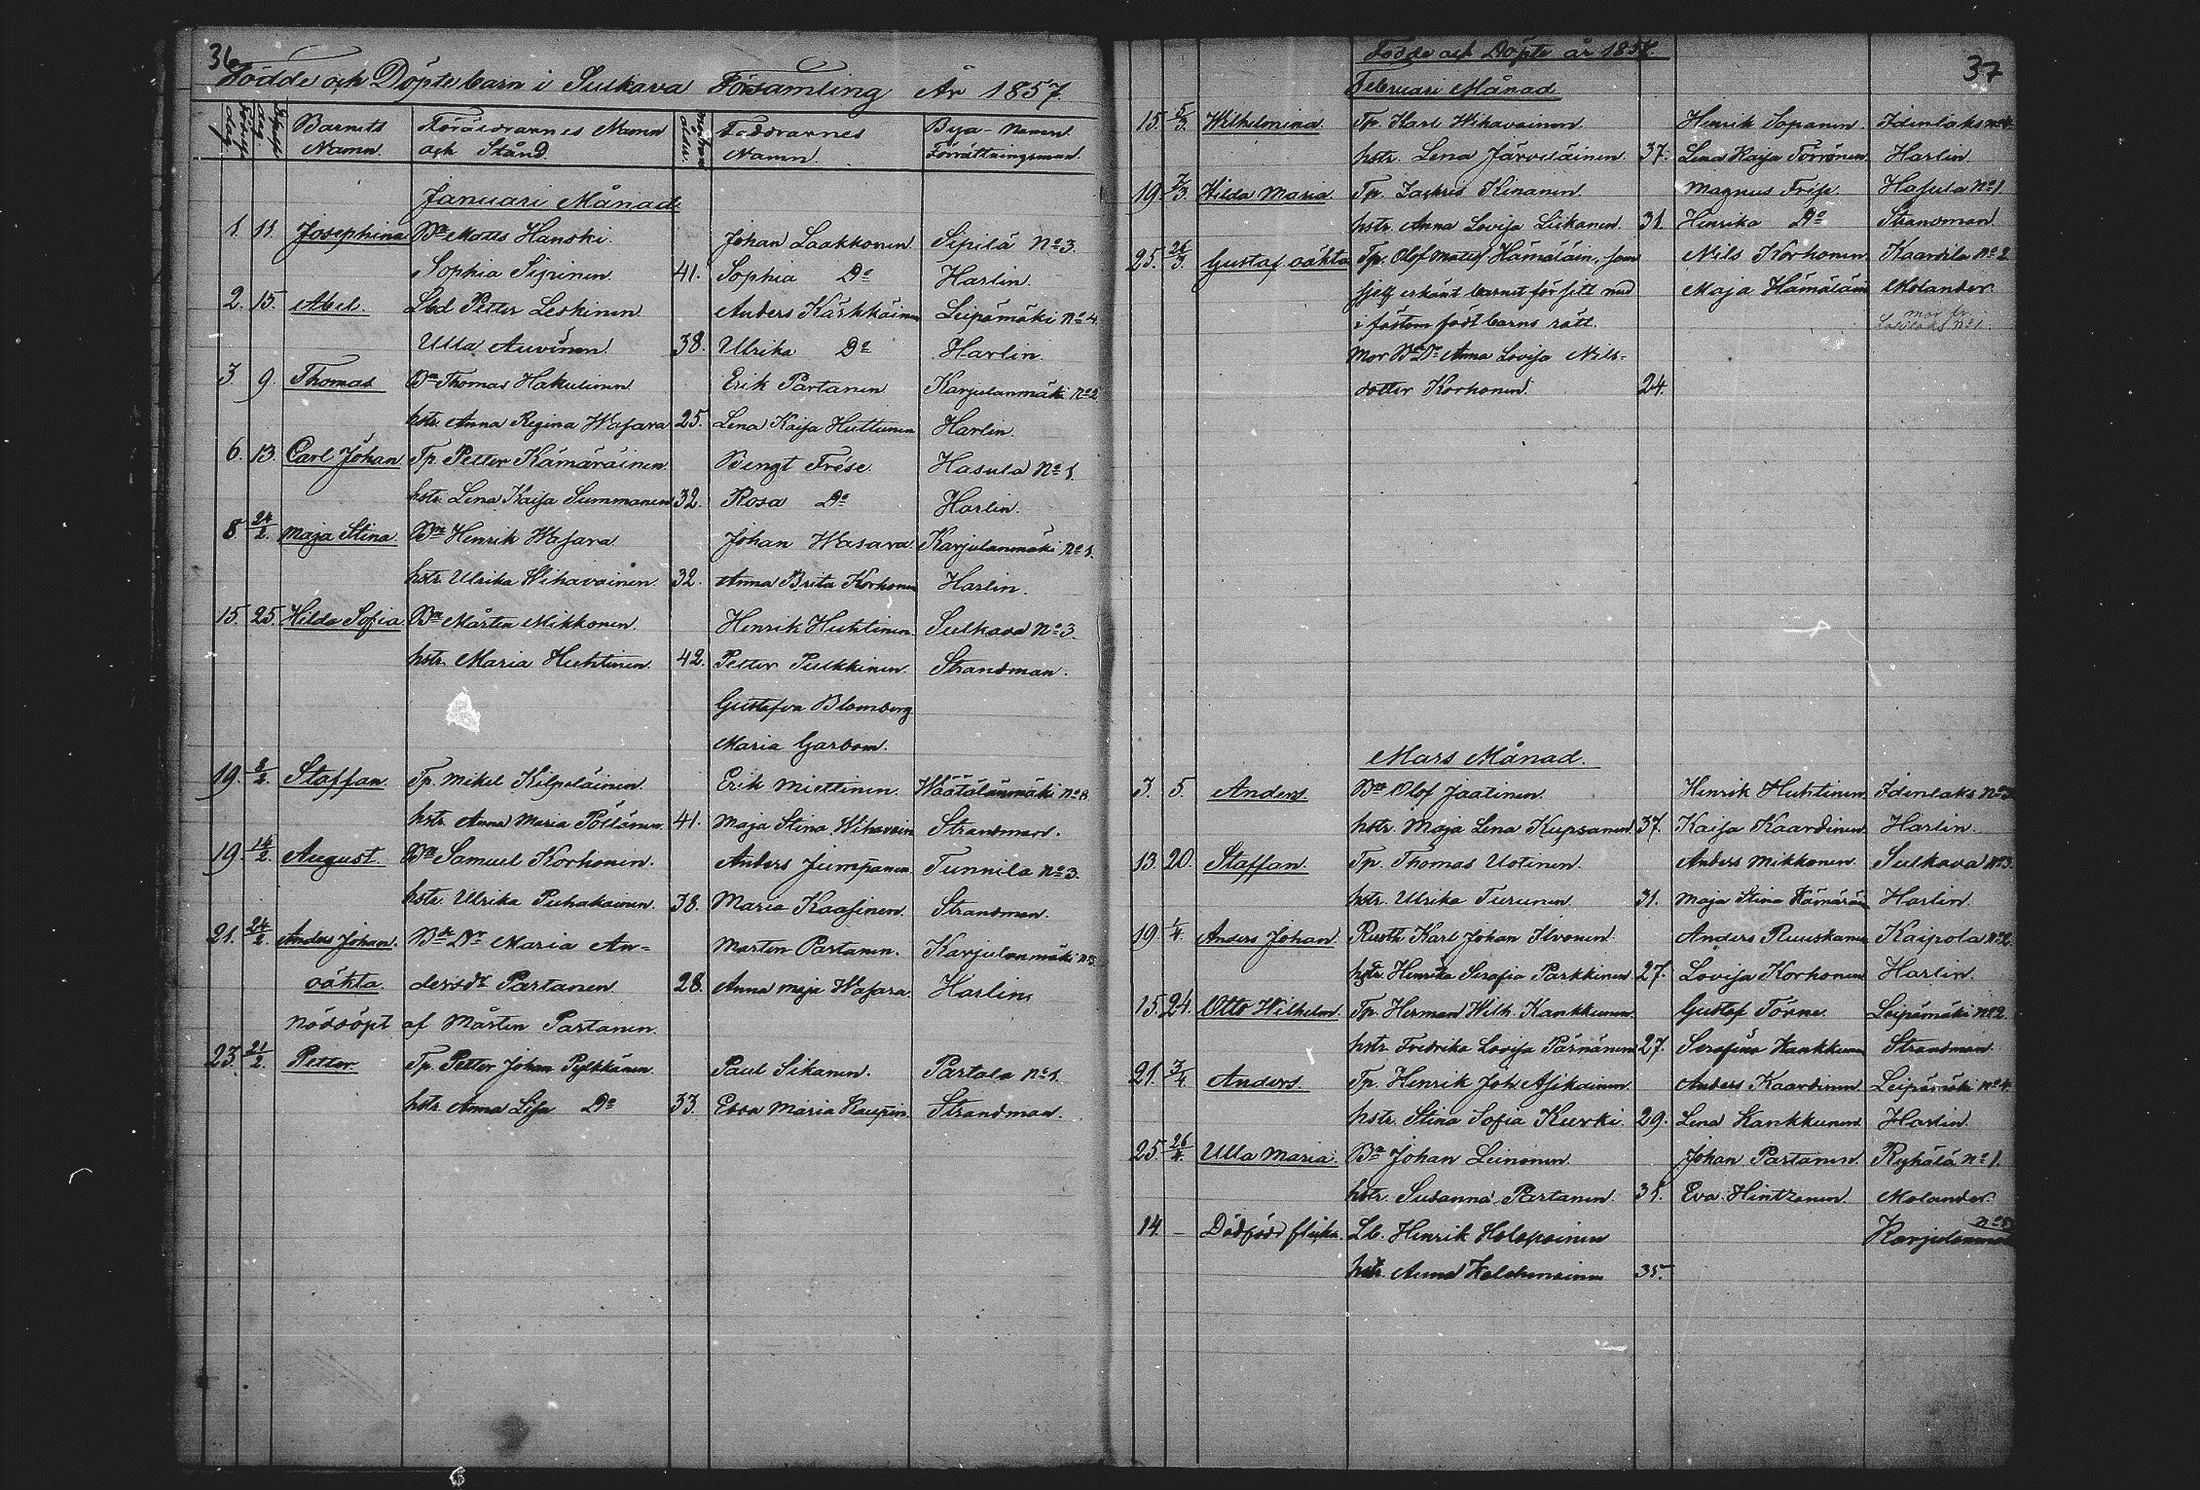 36
Födde och Döpte barn i Sulkava Församling År 1857.
Barnets Namn. Föräldrarnes Namn och Stånd. Faddrarnes Namn. Bya-Namn. Förrättningsman.
Januari Månad
1. 11. Josephina Bn Matts Hanski. Johan Laakkonen Sipilä No 3.
Sophia Sipinen 41. Sophia Do Harlin.
2. 15. Abel. Petter Leskinen Anders Kärkkäinen Leipämäki No 4.
Ulla Auvinen 38. Ulrika Do Harlin
3. 9. Thomas Bn Thomas Hakulinen Erik Partanen Karjulanmäki No 2
hstr. Anna Regina Wasara 25. Lena Kaisa Huttunen Harlin.
6. 13. Carl Johan Tp. Petter Kämäräinen Bengt Frése Hasula No 1.
hstr. Lena Kaisa Summanen 32. Rosa Do Harlin.
8. 24/2. Maja Stina Bn Henrik Wasara Johan Wasara. Karjulanmäki No 1.
hstr. Ulrika Wihavainen 32. Anna Brita Korhonen Harlin.
15. 25. Hilda Sofia. Bn Mårten Mikkonen. Henrik Huhtinen. Sulkava No 3.
hstr. Maria Huhtinen. 42. Petter Pulkkinen. Strandman.
Gustafva Blomberg
Maria Garbom.
19. 8/2. Staffan. Tp. Mikel Kilpeläinen. Erik Miettinen. Väätälänmäki No 8.
hstr. Anna Maria Pöllänen. 41. Maja Stina Wihavain Strandman.
19. 14/2. August. Bn Samuel Korhonen. Anders Jumpanen Tunnila No 3.
hstr. Ulrika Puhakainen. 38. Maria Kaasinen. Strandman.
21. 24/2. Anders Johan. Bd Dr Maria An= Marten Partanen. Karjulanmäki No 5.
oäkta dersdr Partanen 28. Anna Maja Wasara. Harlin
nöddöpt af Mårten Partanen.
23. 21/2. Petter Tp. Petter Johan Pylkkänen. Paul Sikanen. Partala No 1.
hstr. Anna Lisa Do 33. Eva Maria Kaupin Strandman.
37
Födde och Döpte år 1857.
Februari Månad.
15. 5/3. Wilhelmina. Tp. Karl Wihavainen. Henrik Sopanen. Idenlaks
hstr. Lena Järveläinen. 37. Lena Kaisa Torrönen. Harlin.
19. 7/3. Hilda Maria. Tp. Zachris Kinanen. Magnus Frése. Hasula No 1.
hstr. Anna Lovisa Liikanen. 31. Henrika Do Strandman.
25. 26/3. Gustaf oäkta Tp. Olof Matts Hämäläin., som Nils Korhonen Kaartila No 2
sjelf erkänt barnet för sitt med Maja Hämäläin Molander.
i fästom födt barns rätt. mor fr.
Mor Bd Dr Anna Lovisa Nils- No 1.
dotter Korhonen. 24.
Mars Månad.
3. 5. Anders. Bn Olof Jaatinen. Henrik Huhtinen Idenlaks
hstr. Maja Lena Kupsanen 37. Kaisa Kaartinen Harlin.
13. 20. Staffan. Tp. Thomas Uotinen. Anders Mikkonen. Sulkava No 3.
hstr. Ulrika Turunen. 31. Maja Stina Kämäräin Harlin.
19. 1/4. Anders Johan. Karl Johan Ilvonen. Anders Ruuskanen Kaipola No 2.
hstr. Henrika Serafia Parkkinen 27. Lovisa Korhonen. Harlin.
15. 24. Otto Wilhelm. Tp. Herman Wilh. Kankkunen Gustaf Törne. Leipämäki No 2.
hstr. Fredrika Lovisa Pärnänen 27. Serafina Kankkunen Strandman.
21. 3/4. Anders. Tp. Henrik Joh. Asikainen. Anders Kaartinen. Leipämäki No 4.
hstr. Stina Sofia Kurki. 29. Lena Kankkunen. Harlin.
25. 26/4. Ulla Maria. Bn Johan Leinonen. Johan Partanen. Ryhälä No 1.
hstr. Susanna Partanen. 38. Eva Hintzanen. Molander.
14. – Dödfödd flicka. Lb. Henrik Holopainen No
hstr. Anna 35. Karjulanmäki